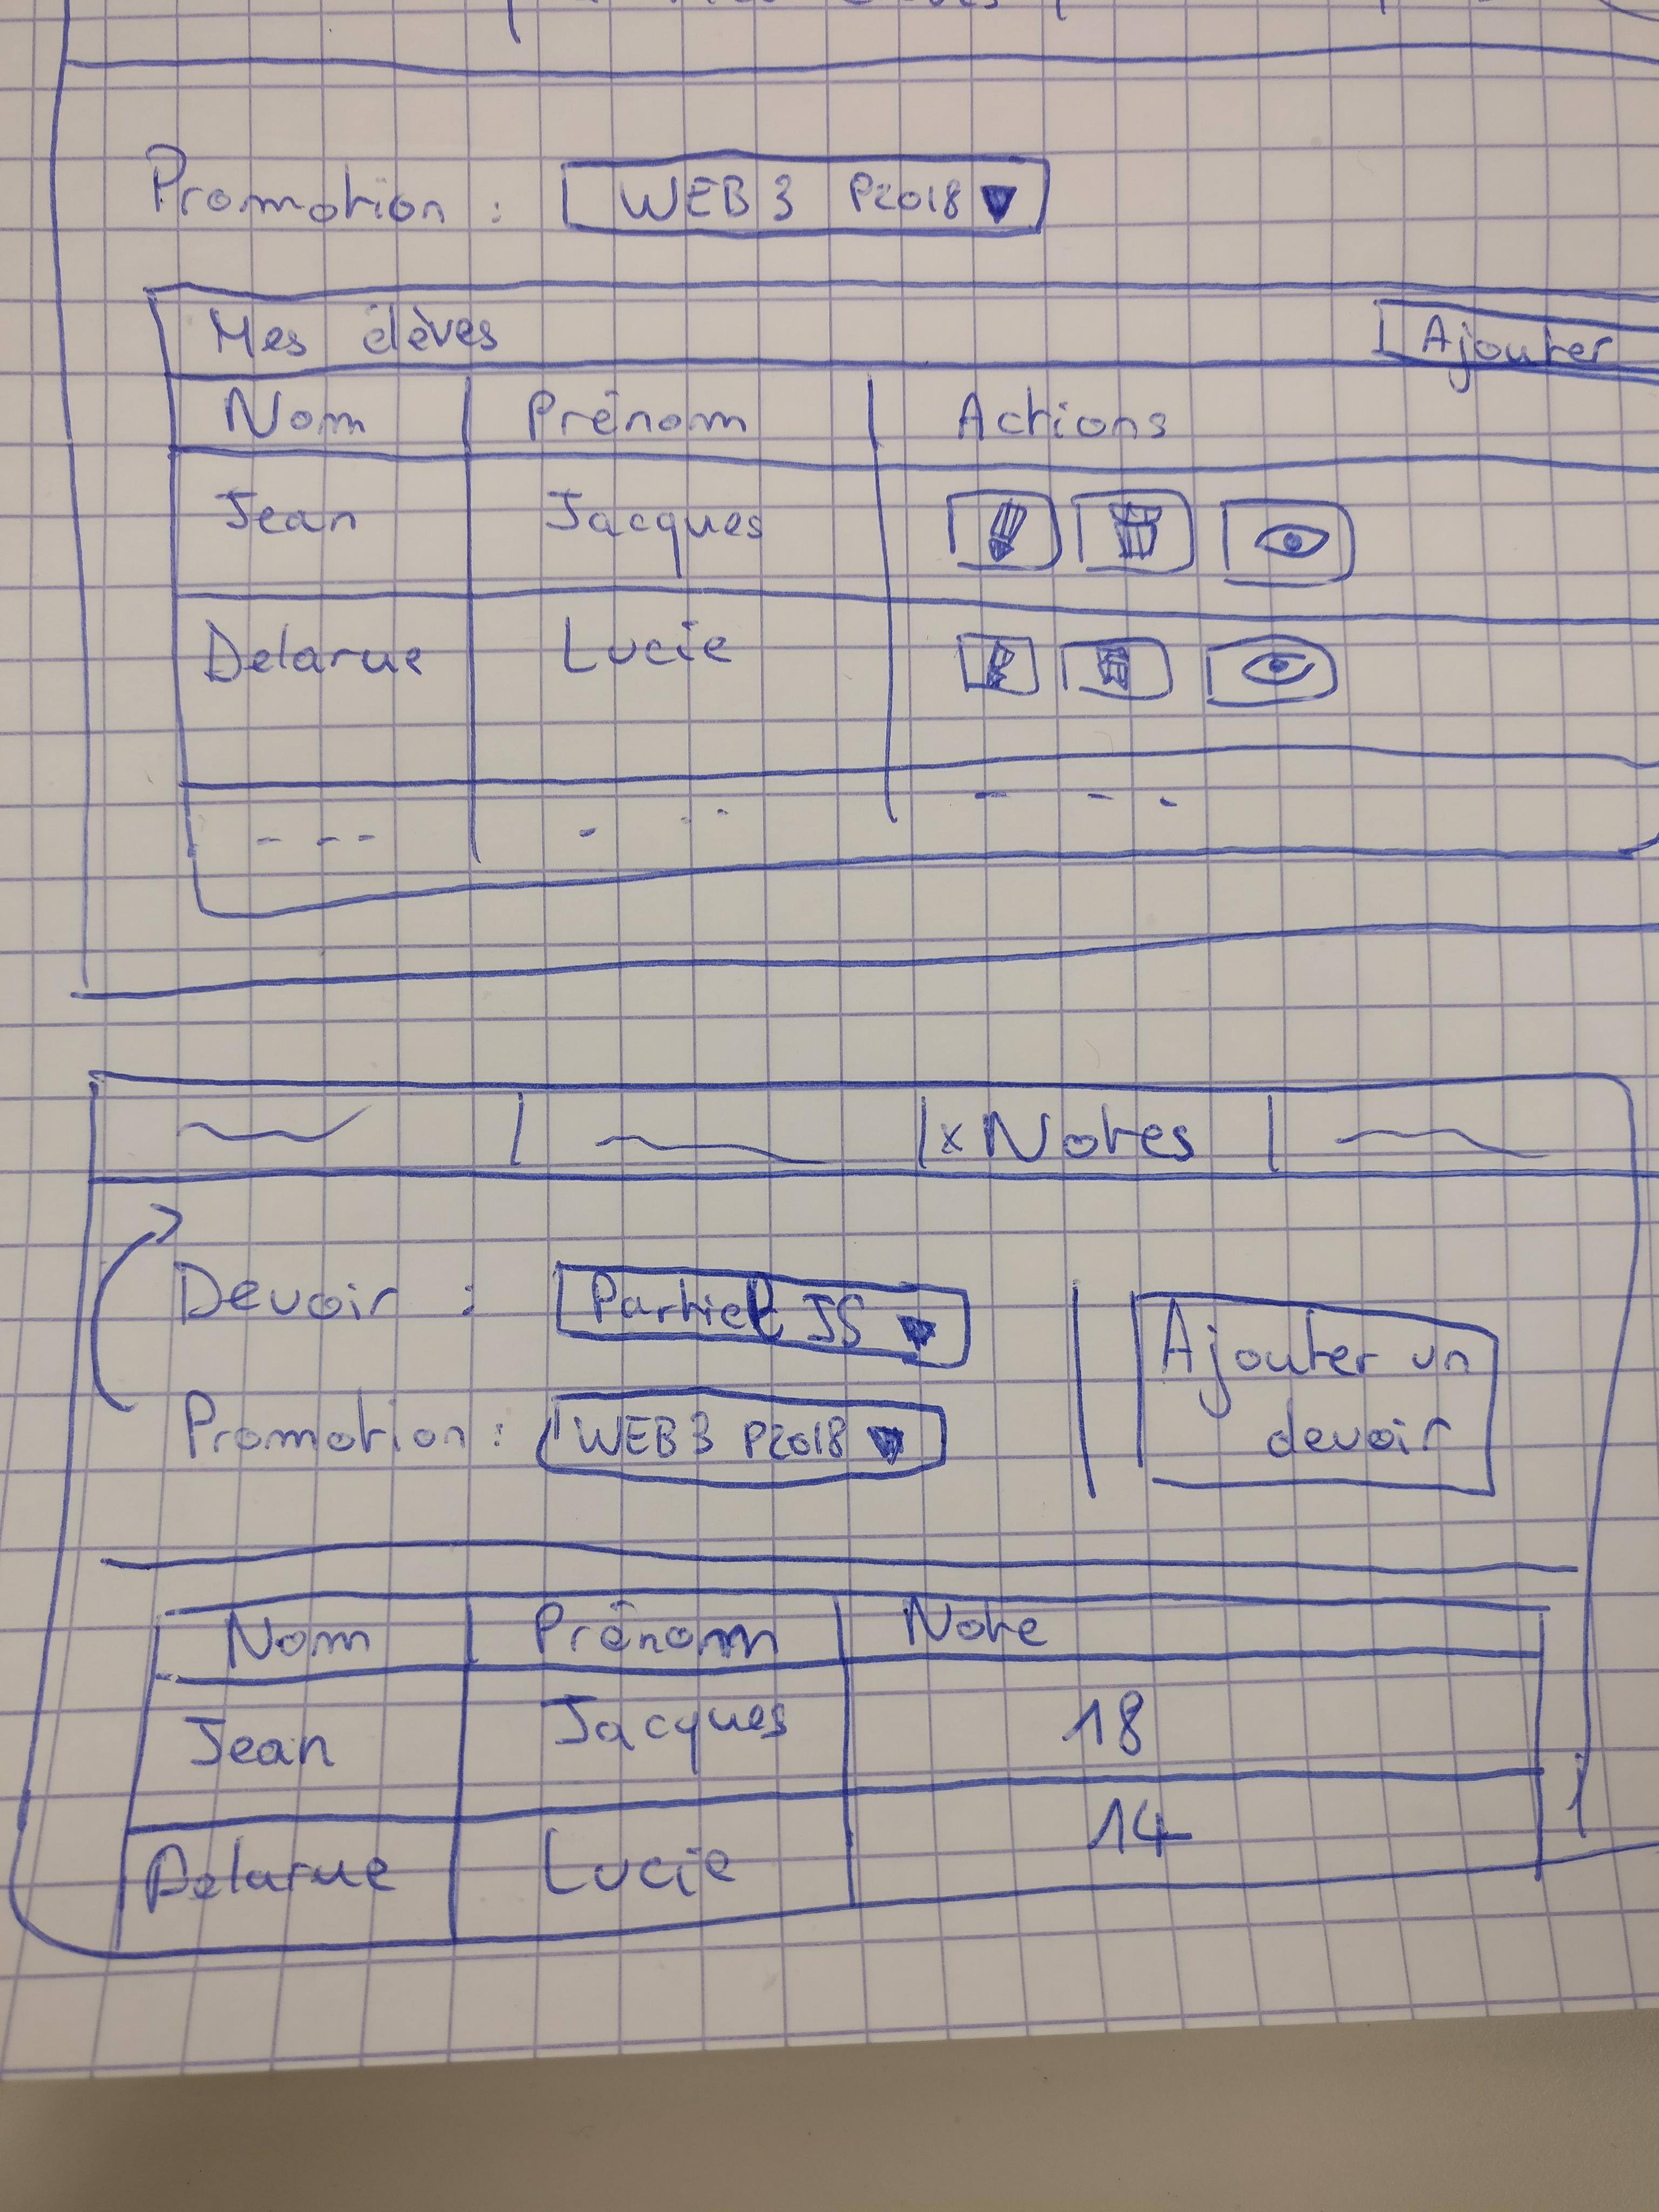 Promotion : WEB 3 P2018
Mes élèves Ajouter
Nom Prénom Actions
Jean Jacques
Delarue Lucie
--- - -- - - -
x Notes
Devoir : Partiel JS
Ajouter un
devoir
Promotion : WEB 3 P2018
Nom Prénom Note
Jean Jacques 18
Delarue Lucie 14